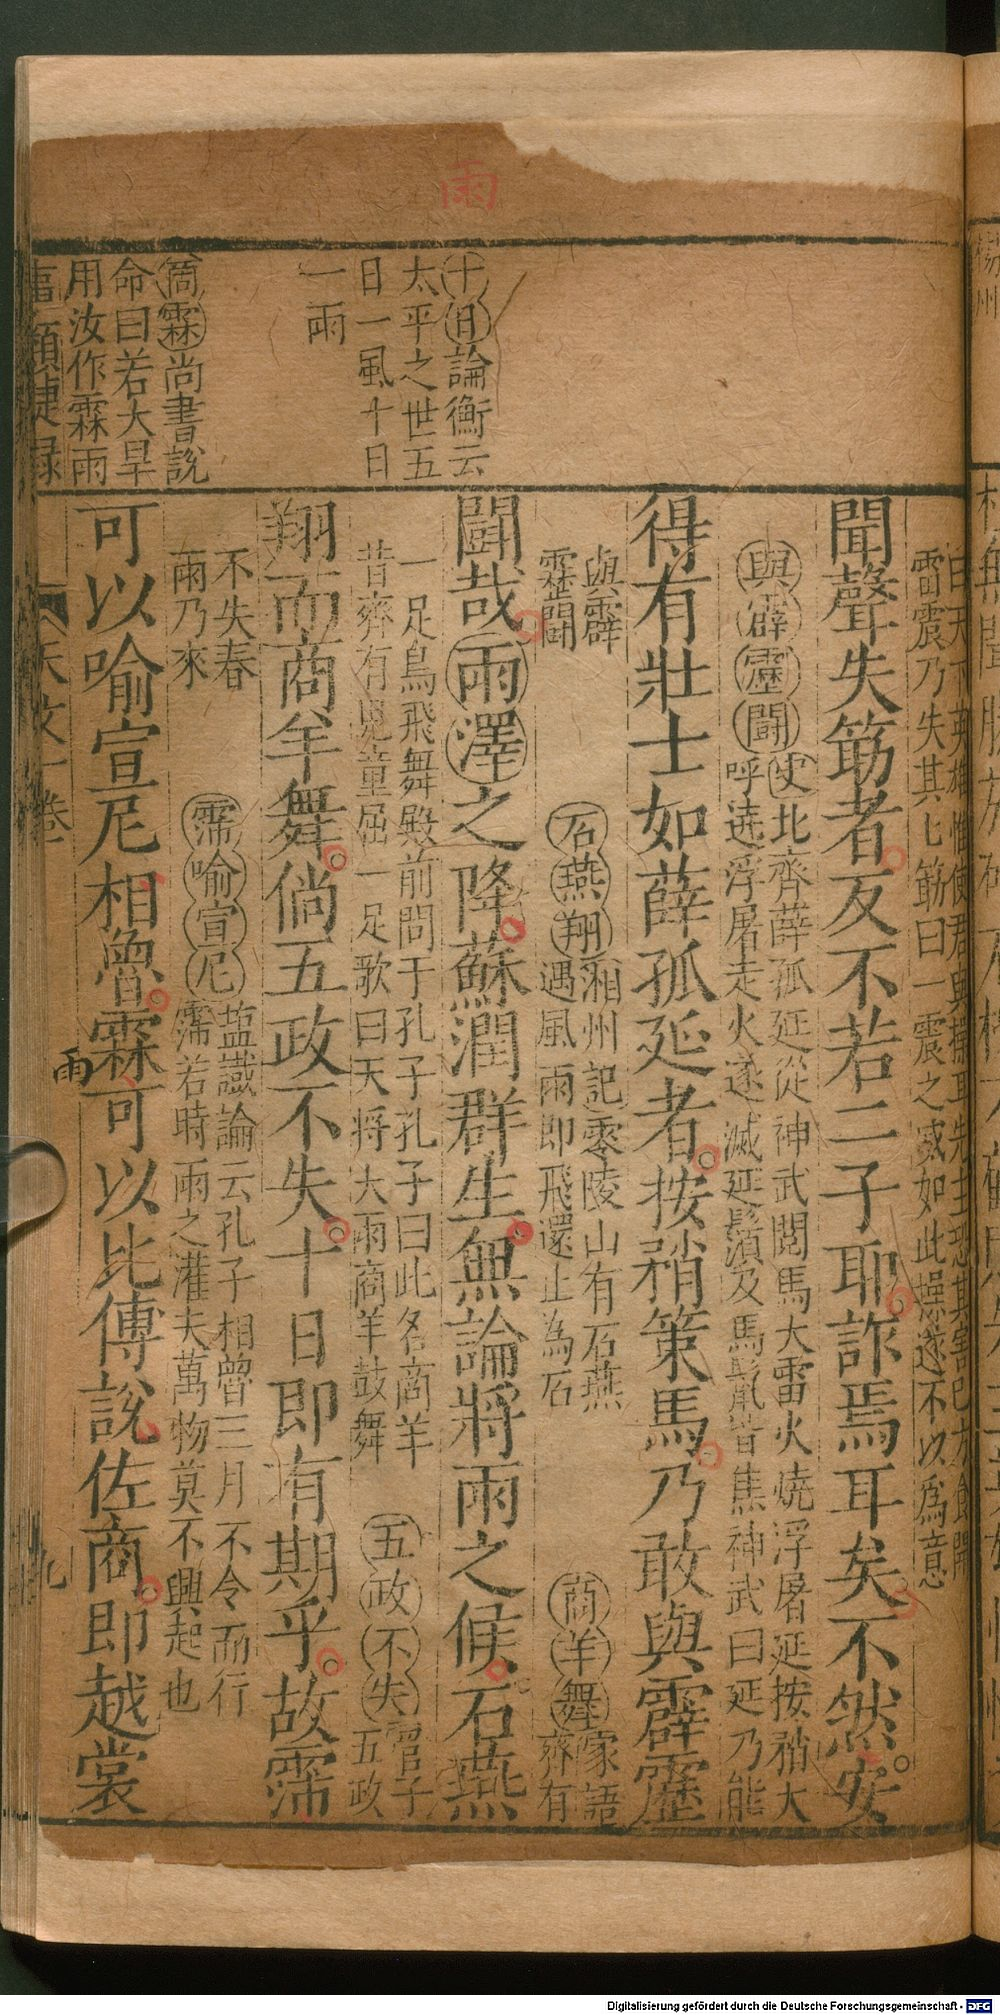 雨
十日論衡云
太平之世五
日一風十日
一雨
商霖尚書說
命曰若大旱
用汝作霖雨
曰天下英雄惟使君與操耳先主恐其害己方食聞
雷震乃失其匕筯曰一震之威如此操遂不以為意
聞聲失筯者反不若二子耶詐焉耳矣不然安
與霹靂鬪史北齊薛孤延從神武閱馬大雷火燒浮屠延按矟大
呼遶浮屠走火遂滅延鬚及馬鬛皆焦神武曰延乃能
得有壯士如薛孤延者按矟策馬乃敢與霹靂
與霹
靂鬪
石燕翔湘州記零陵山有石燕
遇風雨即飛還止為石
商羊舞家語
齊有
鬪哉雨澤之降蘇潤群生無論將雨之候石燕
一足鳥飛舞殿前問于孔子孔子曰此名商羊
昔齊有兒童屈一足歌曰天將大雨商羊鼓舞
五政不失管子
五政
翔而商羊舞倘五政不失十日即有期乎故霈
不失春
雨乃來
霈喻宣尼塩鐵論云孔子相魯三月不令而行
霈若時雨之灌夫萬物莫不興起也
可以喻宣尼相魯霖可以比傅說佐商即越裳
雨
事類捷錄
天文一卷
九
Digitalisierung gefördert durch die Deutsche Forschungsgemeinschaft - DFG